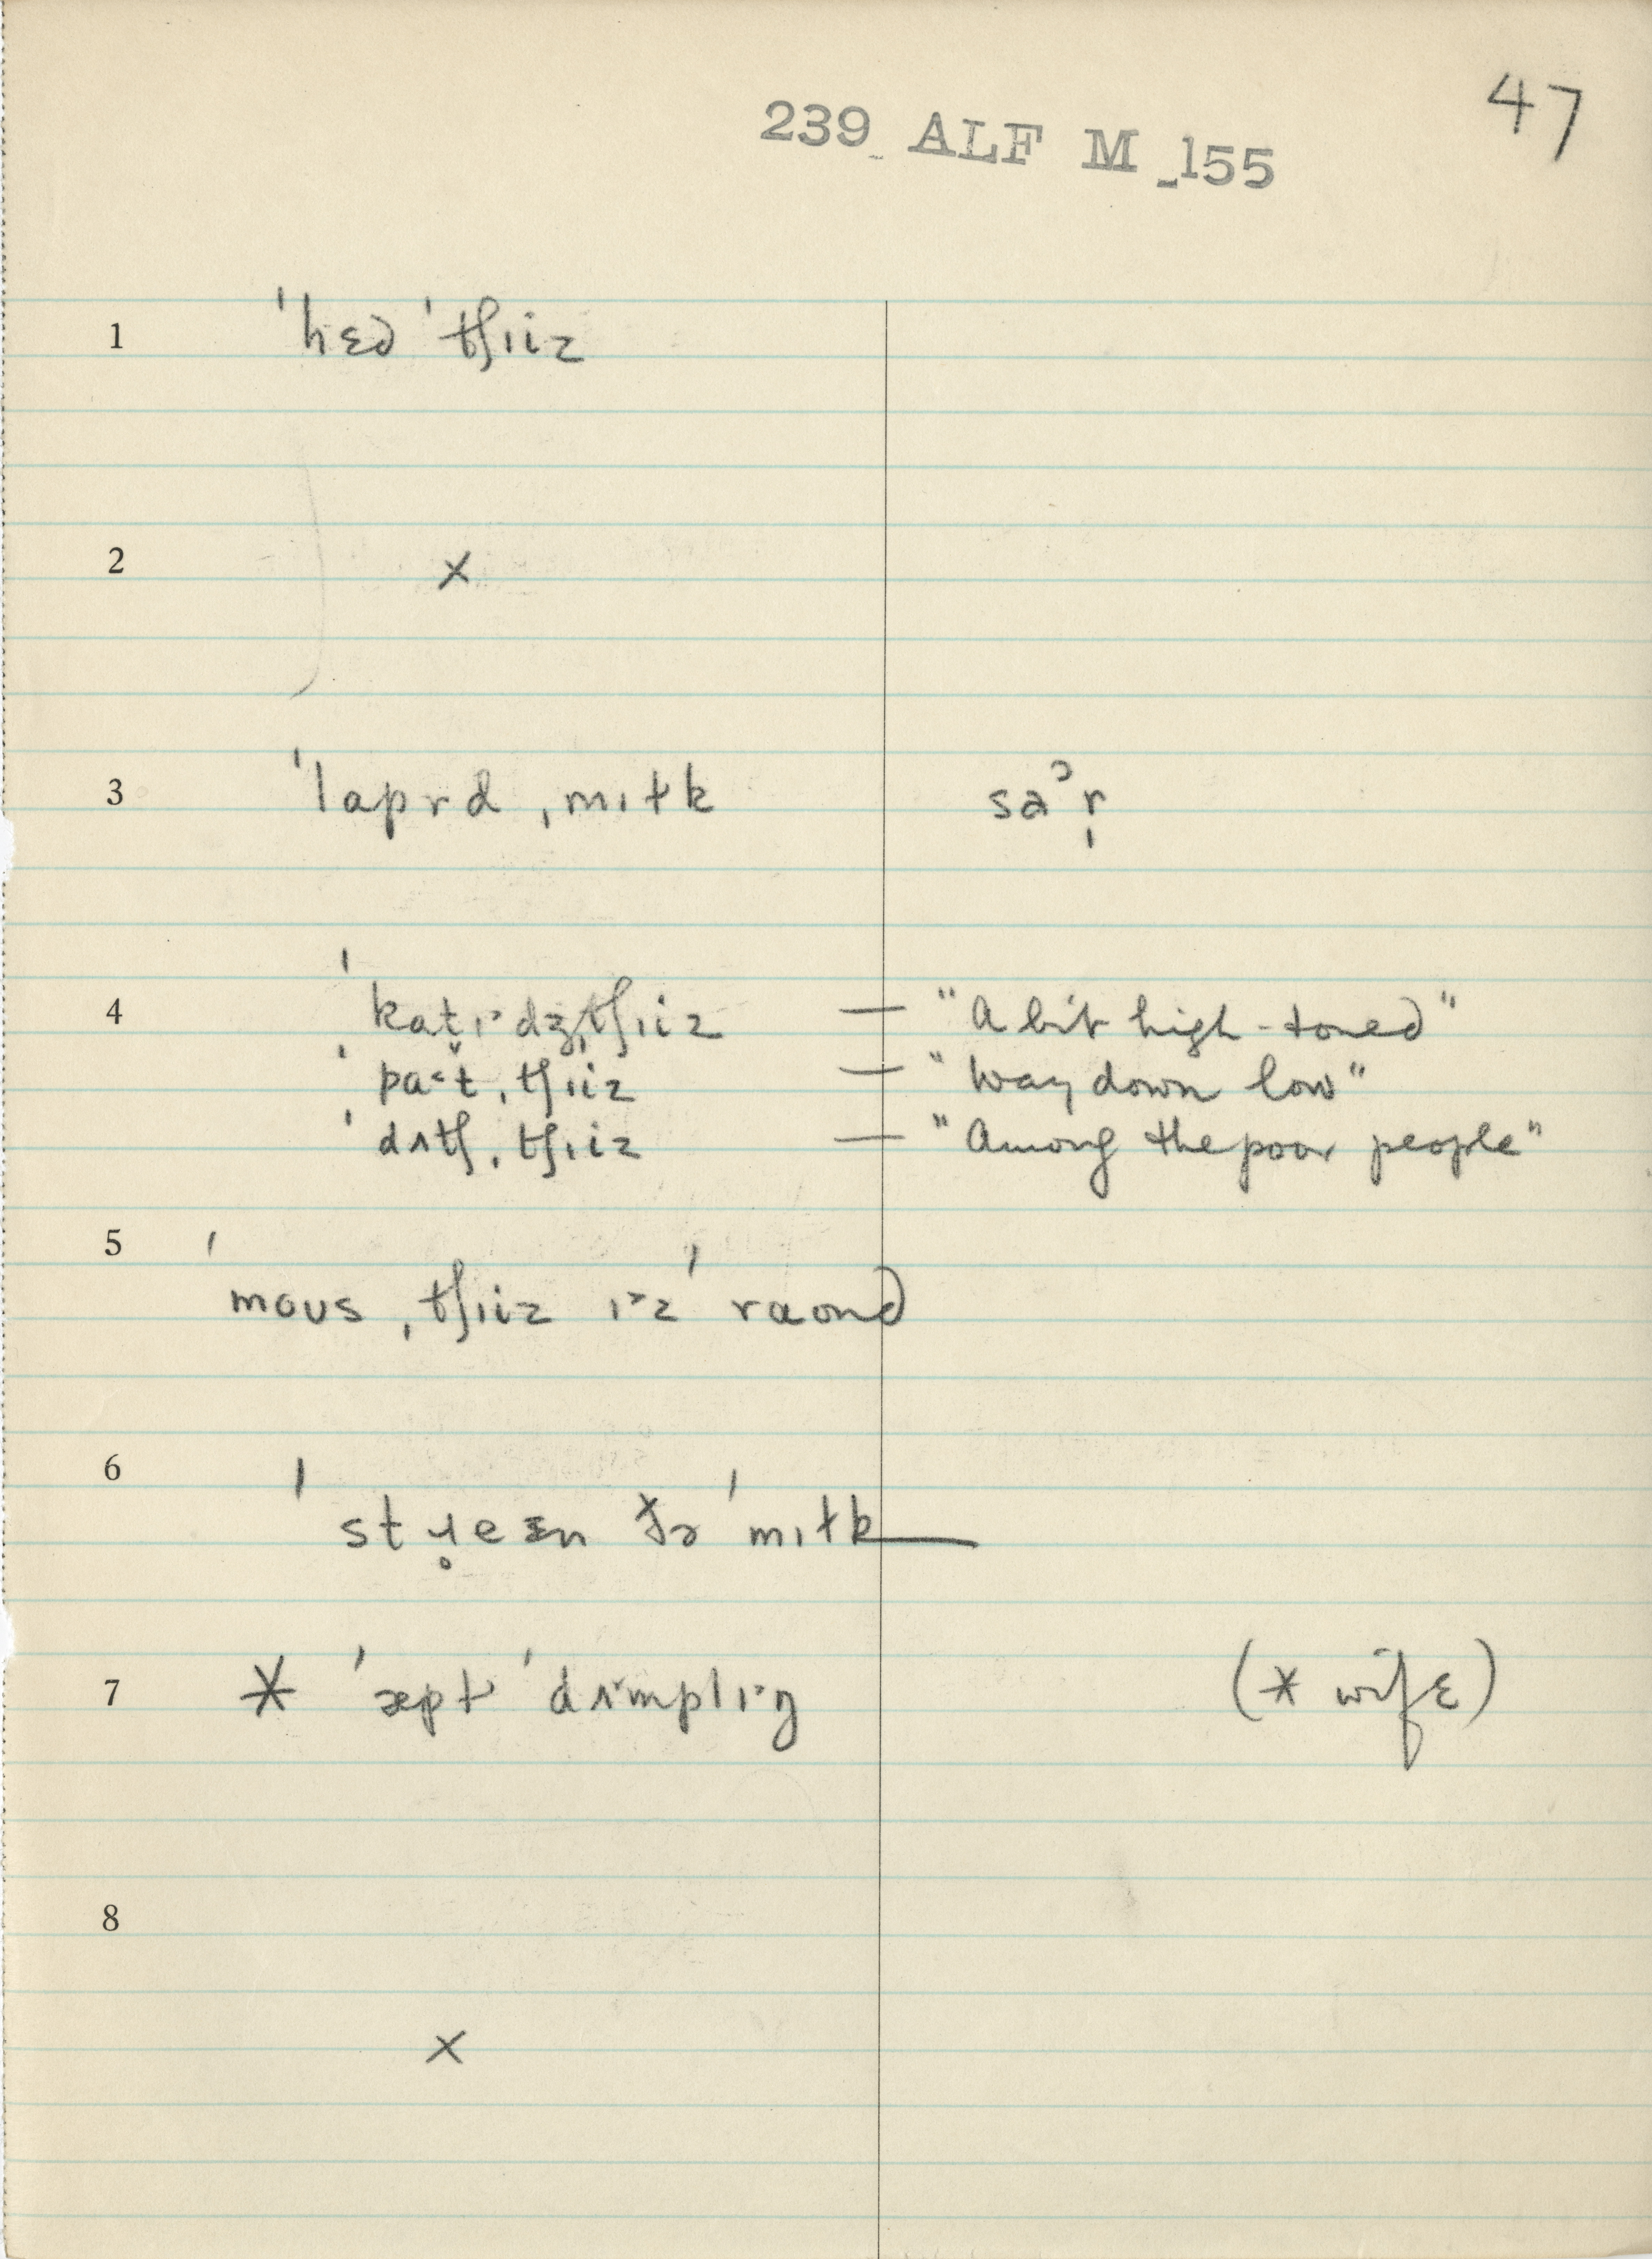 47
239 ALF M 155
1 ˈhɛd ˈtʃɪiz
2 x
3 ˈlaprd ˌmɪɫk saᵊr̩
4 ˈkɑt̬ɪ˃dʒˌtʃɪiz — "A bit high-toned"
ˈpɑ˂t̬ˌtʃɪiz — "Way down low"
ˈdʌtʃˌtʃɪiz — "Among the poor people"
5 ˈmɑusˌtʃɪiz ɪ˃z ˈraond
6 ˈstɹ̥eɪn ðə ˈmɪɫk
7 * ˈæpɫ ˈdʌmplɪ˃ŋ (* wife)
8 x